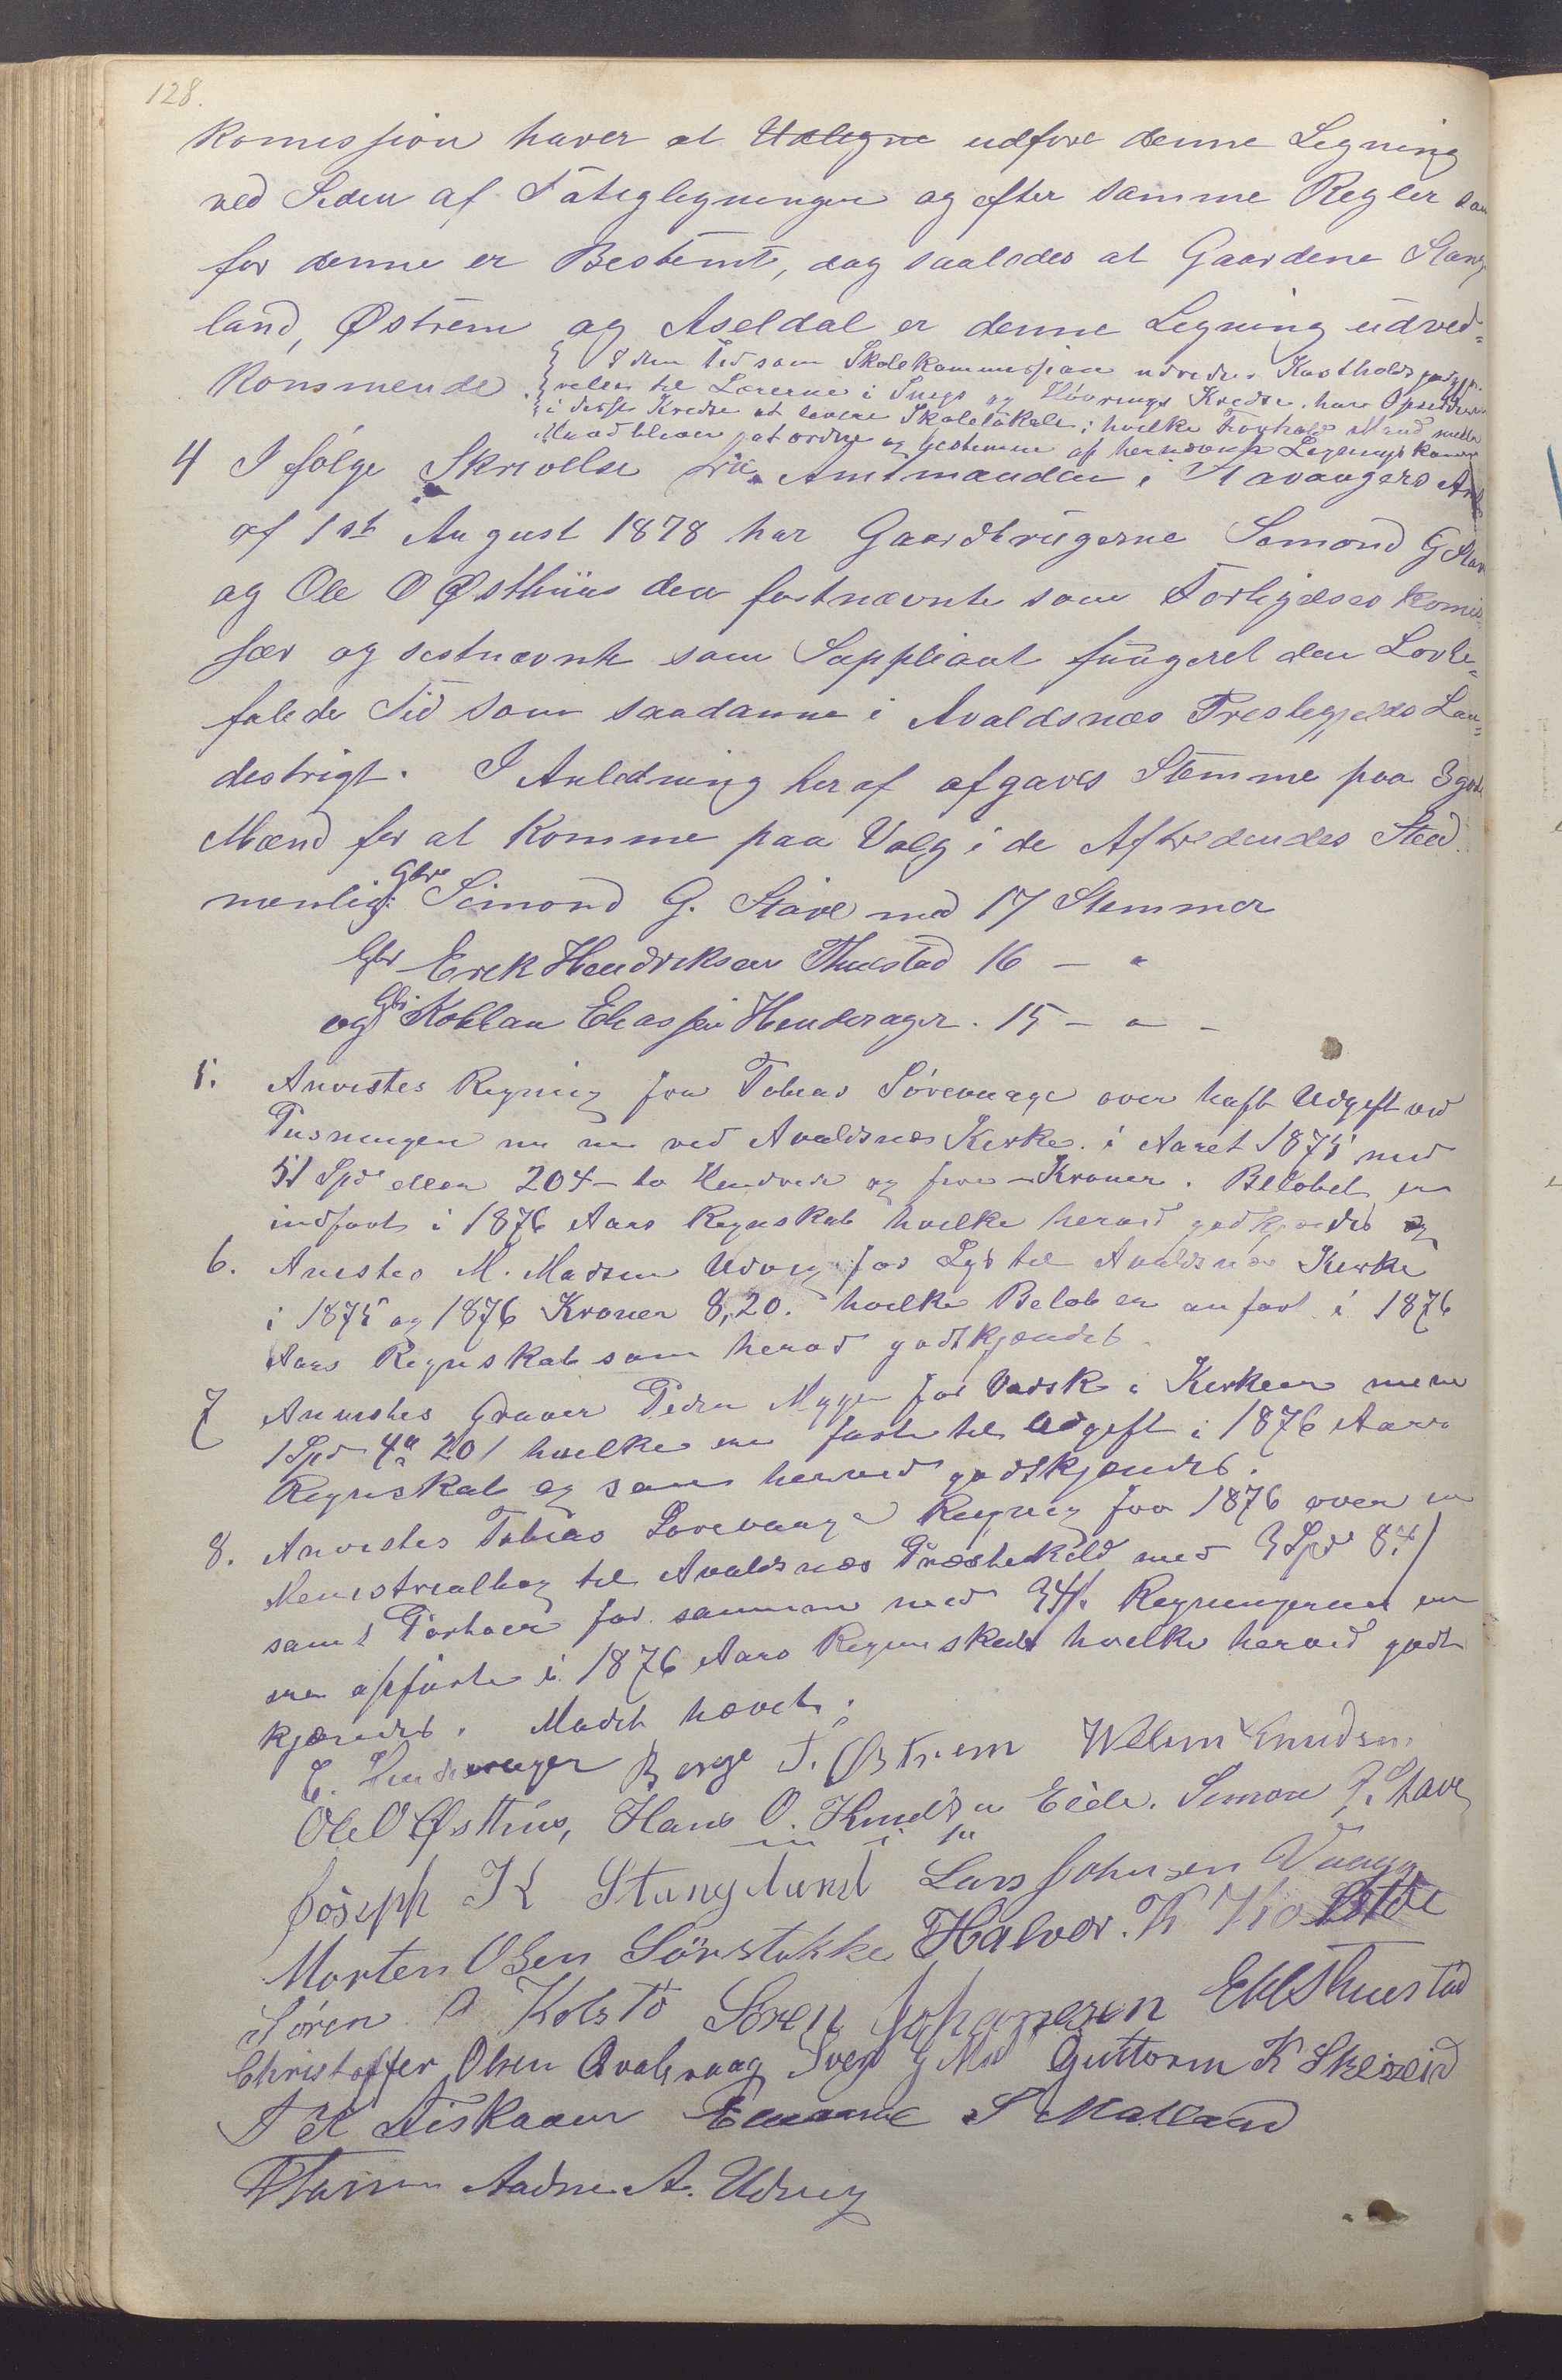 128.
Komission haver at Udligne udføre denne Ligning
ved Siden af Fatigligningen og efter samme Regler som
for denne er Bestemt, dog saaledes at Gaardene Stang
land, Østrem og Aseldal er denne Ligning uved=
Kommende.
I den Tid som Skolekommissjon udreder Kostholds
til Lærerne i og Kredse, har Opsidderne
i disse Kredse at levere Skolelokale; hvilke Forhold
blive at ordne og bestemme af hersværende Lignings
4 I følge Skrivelse fra Amtmanden i Stavangers Amt
af 1ste August 1878 har Gaardbrugerne Simond G Stave
og Ole O Østhuus den førstnævnte som Forligelses Komis
sær og sistnævnte som Suppleant fungeret den Lovbe=
falede Tid som saadanne i Avaldsnæs Prestegjelds Lan=
destrigt. I Anledning heraf afgaves Stemme paa 3 gode
Mænd for at Komme paa Valg i de Aftrædendes Sted.
nemlig: Gbr Simond G. Stave med 17 Stemmer
Gbr Erek Hendreksen Thuestad 16 – "
og Gbr Kolban Eliassen Henderager. 15 – " –
5. Anvistes Regning fra Tobias Sørevaage over haft Udgift ved
Pusningen ved Avaldsnæs Kirke i Aaret 1875 med
51 Spd eller 204 – to Hundrede og fire – Kroner. Beløbet er
indført i 1876 Aars Regnskab hvilke herved godkjendes
6. Anistes M. Madsen Udvig for Lys til Avaldsnæs Kirke
i 1875 og 1876 Kroner 8,20. hvilke Beløb er anført i 1876
Aars Regnskab som herved godtkjendes.
7 Anvistes Graver Peder Nygen for Vadsk i Kirken
1 Spd 4 " 20 / hvilke er ført til Udgift i 1876 Aars
Regnskab og som herved godtkjendes.
8. Anvistes Tobias Sørevaage Regning for 1876 over en
til Avaldsnæs Præstekald med 3 Spd 84 /
samt for samme med Regningerne er
opførte i 1876 Aars Regnskab hvilke herved godt
kjendes. Mødet hævet.
E. Henderager Børge T. Østrem Willum Knudsen
Ole O Østhus, Hans O. Knudsen Eide. Simon G. Stave
Joseph K Stangeland Lars Johnsen Vaage
Morten Olsen Sørstokke Halvor. K
Søren Kolstø Søren Johannesen E H Thuestad
Christoffer Olsen Qvalevaag Svend G Guttorm K Skeiseid
T K Liskaaen S Mokland
Aadne A. Udvig